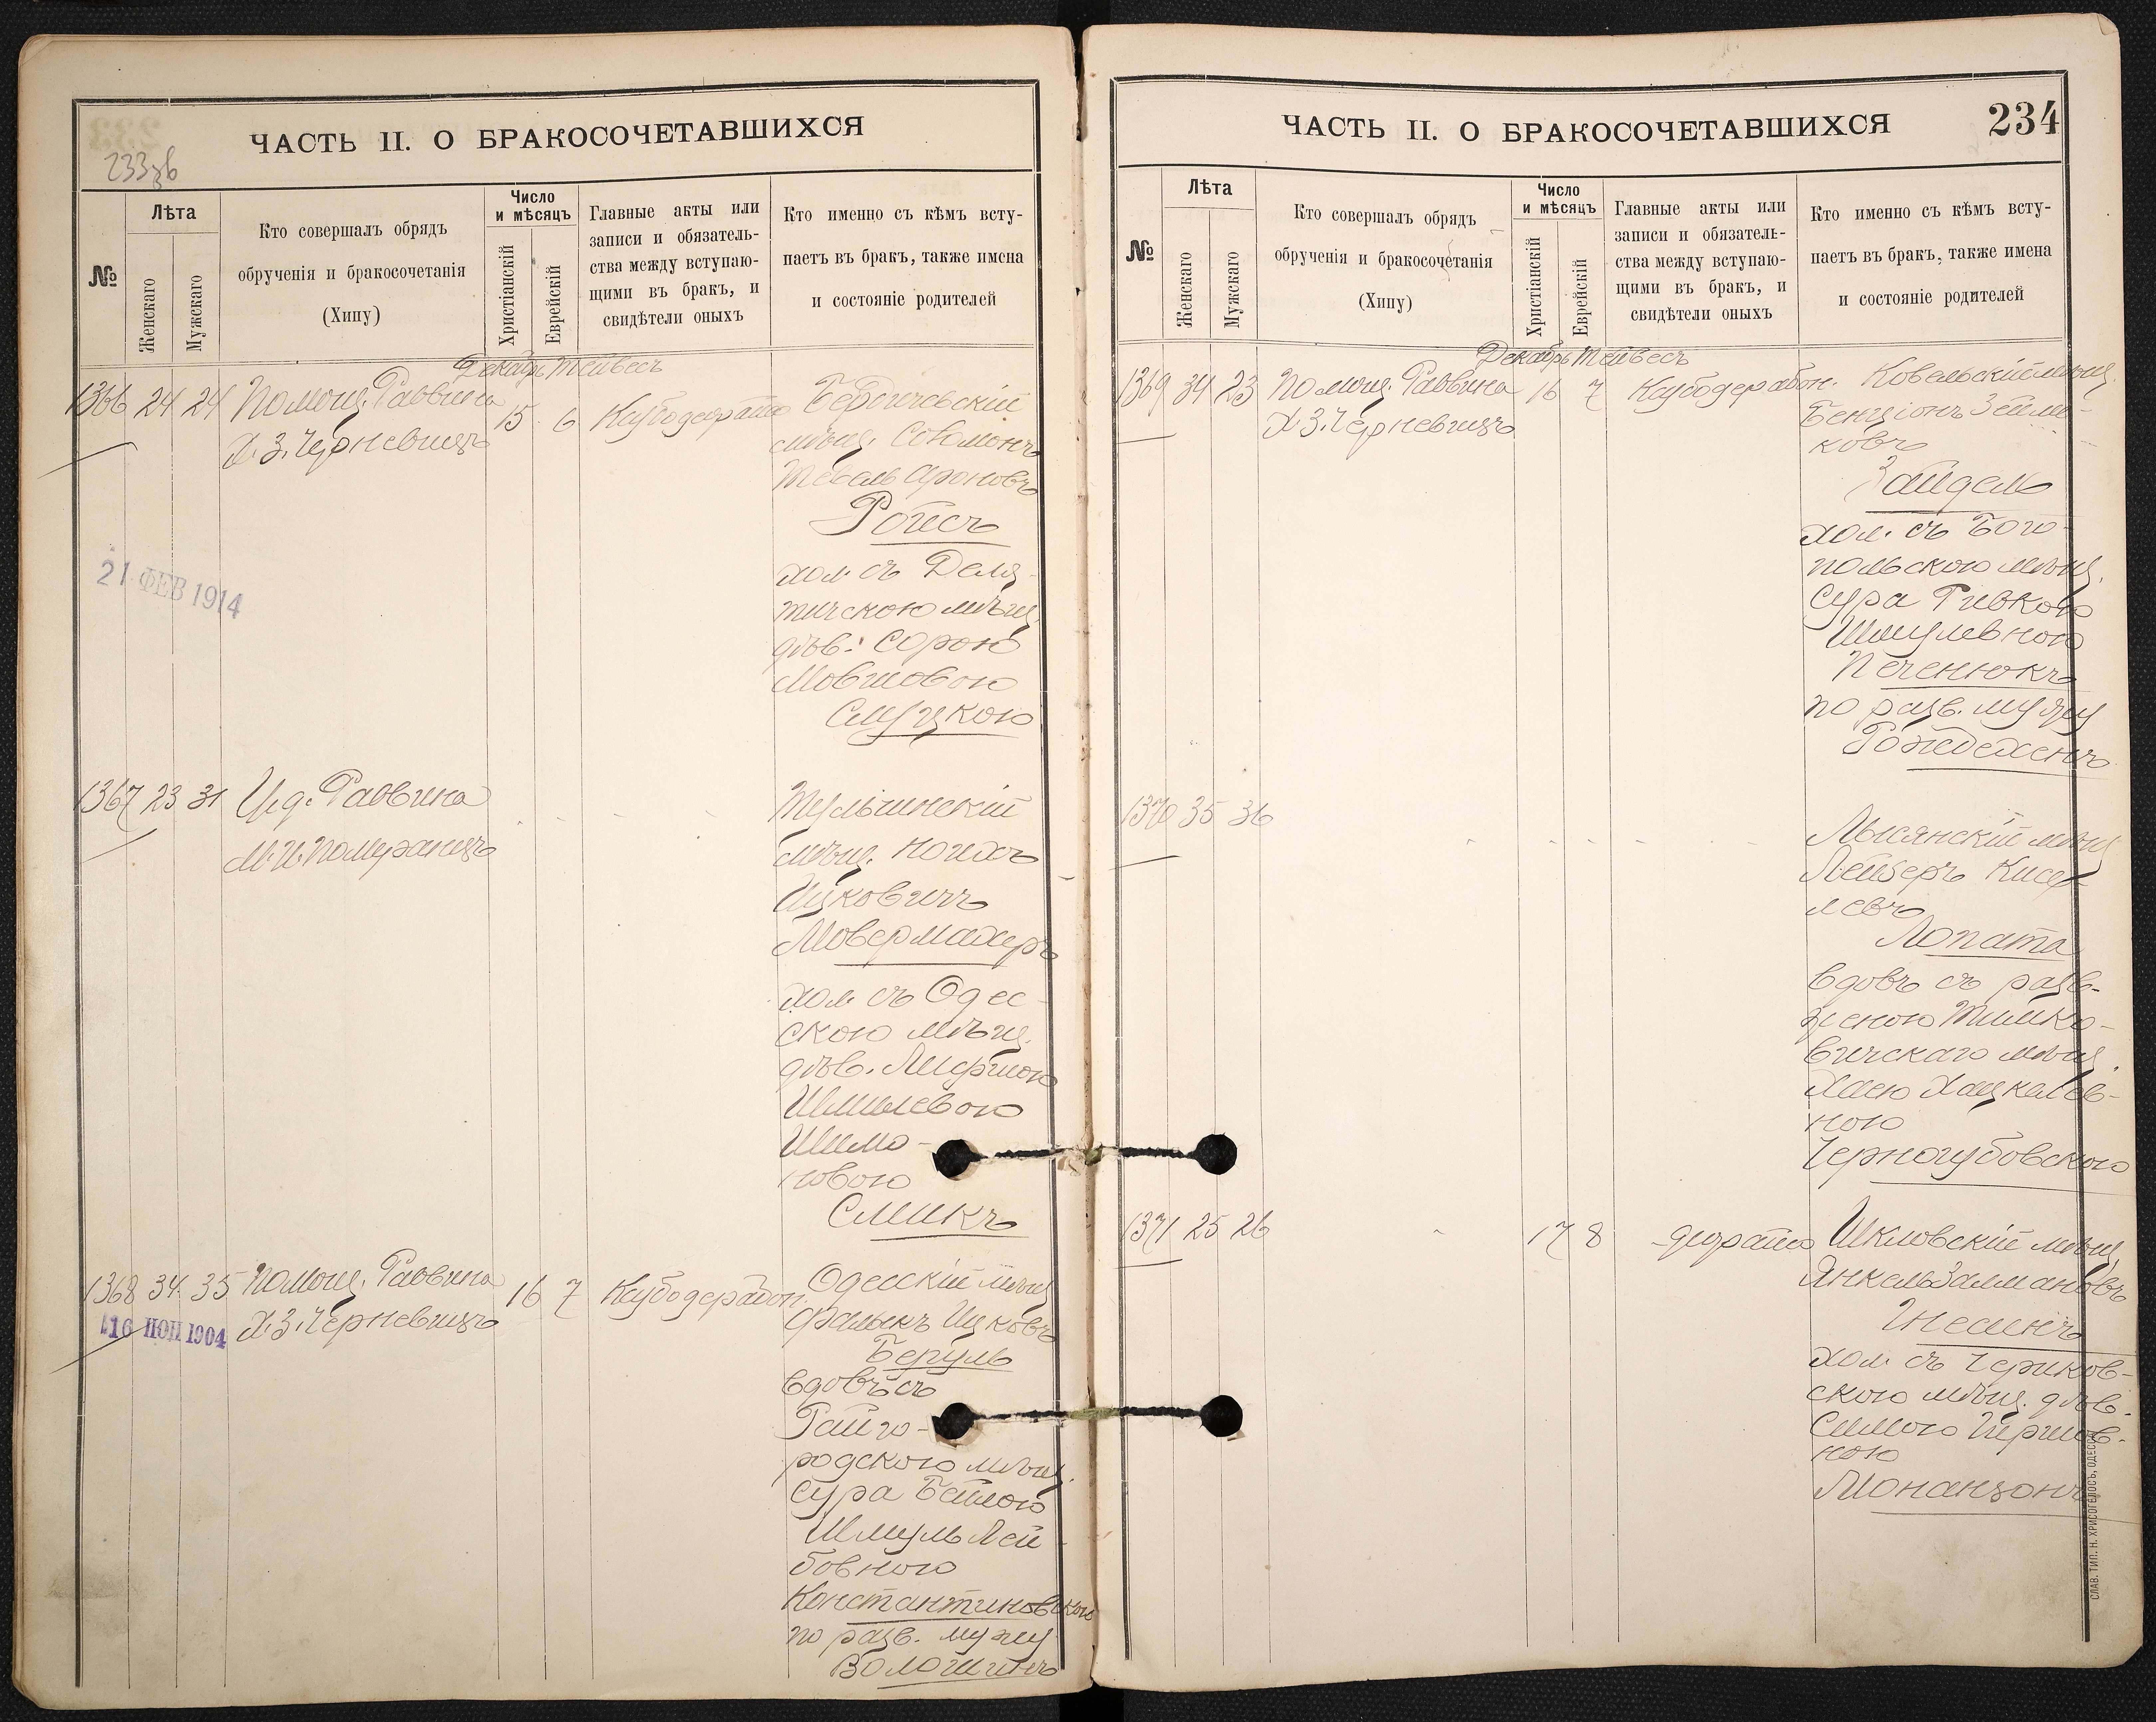 ЧАСТЬ II. О БРАКОСОЧЕТАВШИХСЯ
233зв
№
Лѣта
Женскаго
Мужскаго
Кто совершалъ обрядъ
обрученія и бракосочетанія
(Хипу)
Число
и мѣсяцъ
Христіанскій
Еврейскій
Главные акты или
записи и обязатель-
ства между вступаю-
щими въ бракъ, и
свидѣтели оныхъ
Кто именно съ кѣмъ всту-
паетъ въ бракъ, также имена
и состояніе родителей
Декабрь Тейвесъ
1366 24 24 Помощ. Раввина
Х.З. Черневицъ
15 6
Бердичевскій
мѣщ. Соломонъ
Тевель Ароновъ
Ройсъ
хол. съ Деля-
тичскою мѣщ.
дѣв. Сорою
Мовшовою
Слуцкою
21 ФЕВ 1914
1367 23 31 И.д. Раввина
М.И. Померанецъ
Тульчинскій
мѣщ. Нойахъ
Ицковичъ
Мовермахеръ
хол. съ Одес-
скою мѣщ.
дѣв. Лифшою
Шмилевою
Шимо-
новою
Смикъ
1368 34 35 Помощ. Раввина
Х.З. Черневицъ
16 ИОН 1904
16 7
Одесскій мѣщ.
Фалькъ Ицковъ
Бергуль
вдовъ съ
Райго-
родскою мѣщ.
Сура Бейлою
Шмуль Лей-
бовною
Константиновскою
по разв. мужу
Волошинъ
ЧАСТЬ II. О БРАКОСОЧЕТАВШИХСЯ
234
№
Лѣта
Женскаго
Мужскаго
Кто совершалъ обрядъ
обрученія и бракосочетанія
(Хипу)
Число
и мѣсяцъ
Христіанскій
Еврейскій
Главные акты или
записи и обязатель-
ства между вступаю-
щими въ бракъ, и
свидѣтели оныхъ
Кто именно съ кѣмъ всту-
паетъ въ бракъ, также имена
и состояніе родителей
Декабрь Тейвесъ
1369 34 23 Помощ. Раввина
Х.З. Черневицъ
16 7
Ковельскій мѣщ.
Бенціонъ Зейли-
ковъ
Зайдель
хол. съ Бого-
польскою мѣщ.
Сура Ривкою
Шмулевною
Печенюкъ
по разв. мужу
1370 35 36
Лысянскій мѣщ.
Лейзеръ Кисе-
левъ
Лопата
вдовъ съ разв-
женою Тимко-
вичскаго мѣщ.
Хаею Хацкелев-
ною
Черногубовскою
1371 25 26
17 8
Шкловскій мѣщ.
Янкель Залмановъ
хол. съ Чериков-
скою мѣщ. дѣв.
Симою Гиршов-
ною
Монанзонъ
СЛАВ. ТИП. Н. ХРИСОГЕЛОСЪ, ОДЕССА